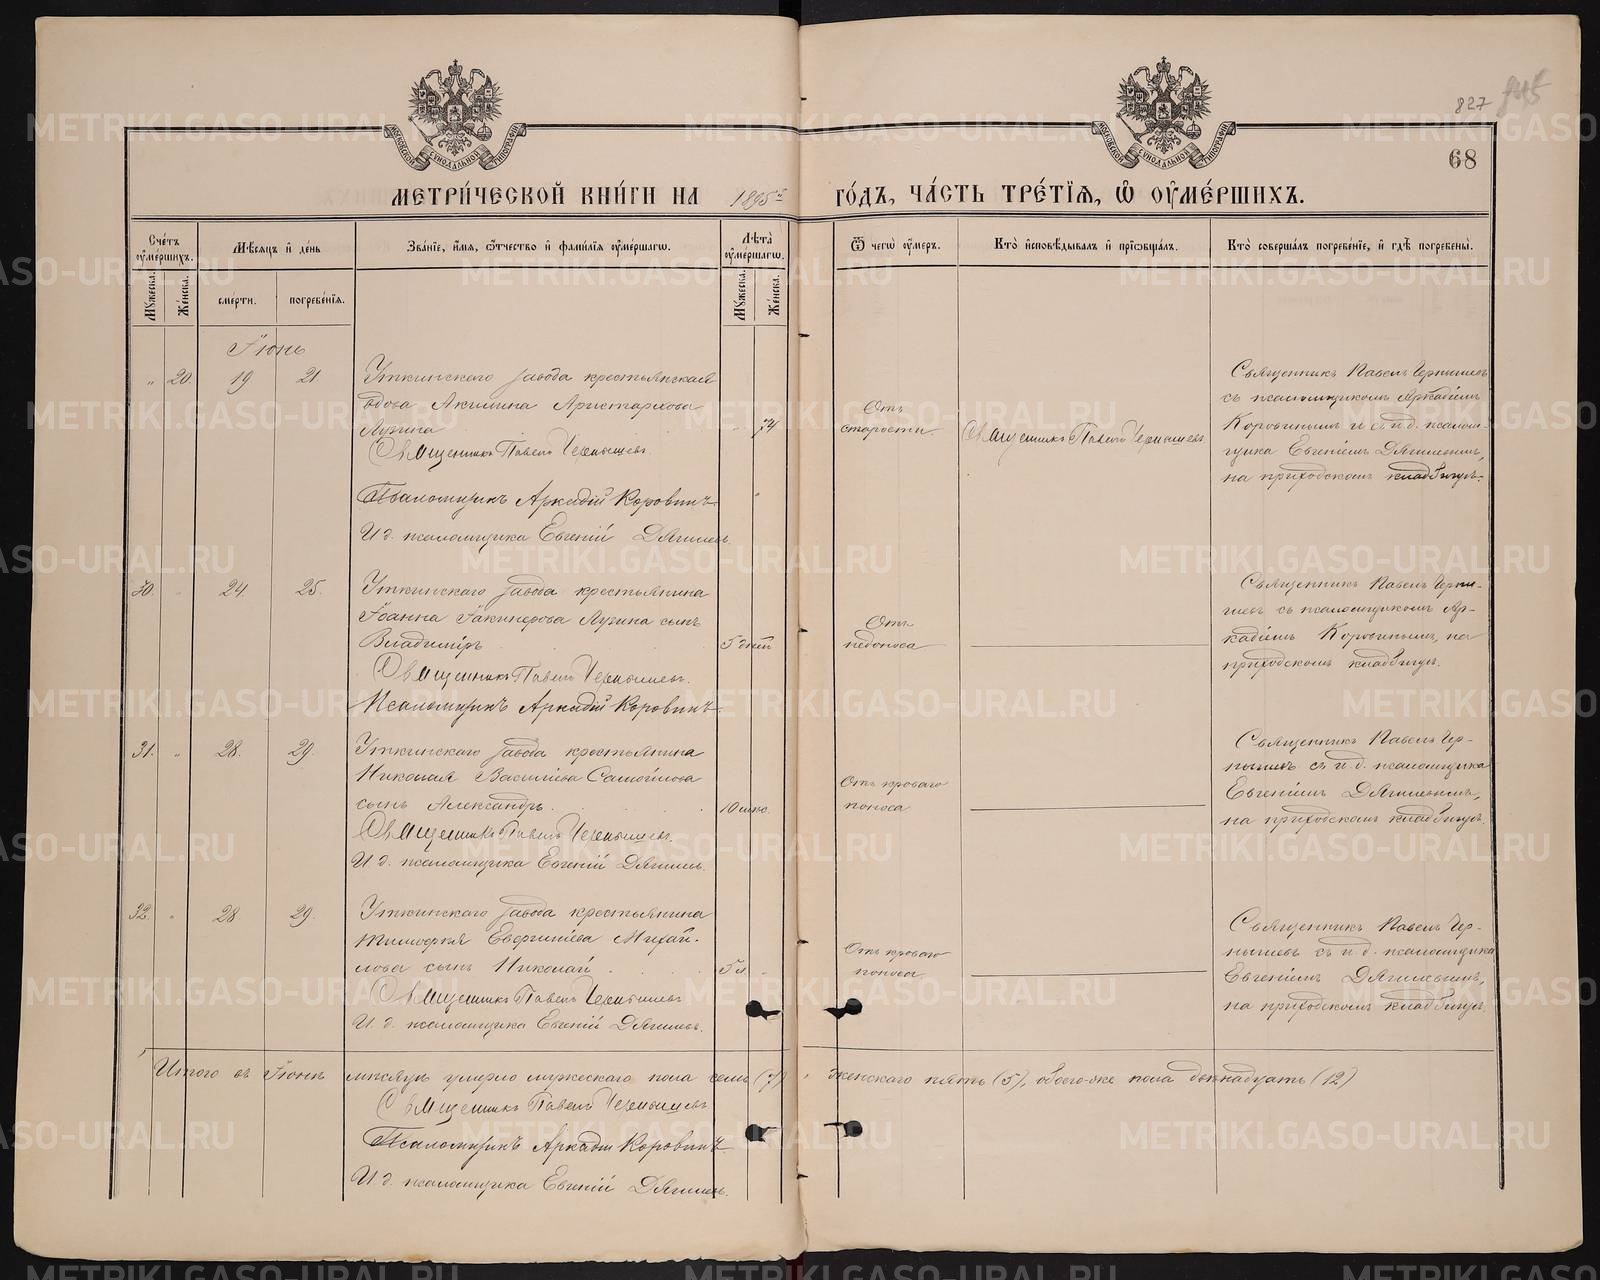 827
68
МОСКОВСКОЙ СѴНОДАЛЬНОЙ ТИПОГРАФІИ
МОСКОВСКОЙ СѴНОДАЛЬНОЙ ТИПОГРАФІИ
МЕТРИ́ЧЕСКОЙ КНИ́ГИ НА 1895й ГО́ДЪ, ЧА́СТЬ ТРЕ́ТІѦ, Ѡ҆ ОУ҆МЕ́РШИХЪ.
Сче́тъ оу҆ме́ршихъ.
Мꙋжеска.
Же́нска.
Мѣсѧцъ и҆ де́нь
сме́рти.
погребе́нїѧ.
Зва́нїе, и҆́мѧ, ѻ҆́тчество и҆ фами́лїѧ оу҆ме́ршагѡ.
Лѣ̀та оу҆ме́ршагѡ.
Мꙋжеска.
Же́нска.
Ѿ чегѡ̀ оу҆́меръ.
Кто̀ и҆сповѣ́дывалъ и҆ прїѡбща́лъ.
Кто̀ соверша́лъ погребе́нїе, и҆ гдѣ̀ погребены̀.
Іюнь
" 20. 19 21.
Уткинскаго завода крестьянская
вдова Акилина Аристархова
Лузина
74
Священникъ Павелъ Чернышевъ.
Псаломщикъ Аркадій Коровинъ
И д. псаломщика Евгеній Дягилевъ.
Отъ
старости.
Священникъ Павелъ Чернышевъ
Священникъ Павелъ Чернышевъ
съ псаломщикомъ Аркадіемъ
Коровинымъ и и. д. псалом-
щика Евгеніемъ Дягилевымъ,
на приходскомъ кладбищѣ.
30. " 24. 25.
Уткинскаго завода крестьянина
Іоанна Іакинфова Лузина сынъ
Владиміръ
5 дней
Священникъ Павелъ Чернышевъ.
Псаломщикъ Аркадій Коровинъ
Отъ
недоноса
Священникъ Павелъ Черны-
шевъ съ псаломщикомъ Ар-
кадіемъ Коровинымъ, на
приходскомъ кладбищѣ.
31. " 28. 29.
Уткинскаго завода крестьянина
Николая Васильева Самойлова
сынъ Александръ.
10 мѣс.
Священникъ Павелъ Чернышевъ.
И д. псаломщика Евгеній Дягилевъ.
Отъ кроваго
поноса
Священникъ Павелъ Чер-
нышевъ съ и. д. псаломщика
Евгеніемъ Дягилевымъ,
на приходскомъ кладбищѣ.
32. " 28 29.
Уткинскаго завода крестьянина
Тимофея Евгеніева Михай-
лова сынъ Николай
5 л.
Священникъ Павелъ Чернышевъ
И. д. псаломщика Евгеній Дягилевъ.
Отъ кроваго
поноса
Священникъ Павелъ Чер-
нышевъ съ и. д. псаломщика
Евгеніемъ Дягилевымъ,
на приходскомъ кладбищѣ.
Итого въ Іюнѣ мѣсяцѣ умерло мужескаго пола семь (7), женскаго пять (5), обоего-же пола двѣнадцать (12)
Священникъ Павелъ Чернышевъ
Псаломщикъ Аркадій Коровинъ
И д. псаломщика Евгеній Дягилевъ.
METRIKI.GASO-URAL.RU